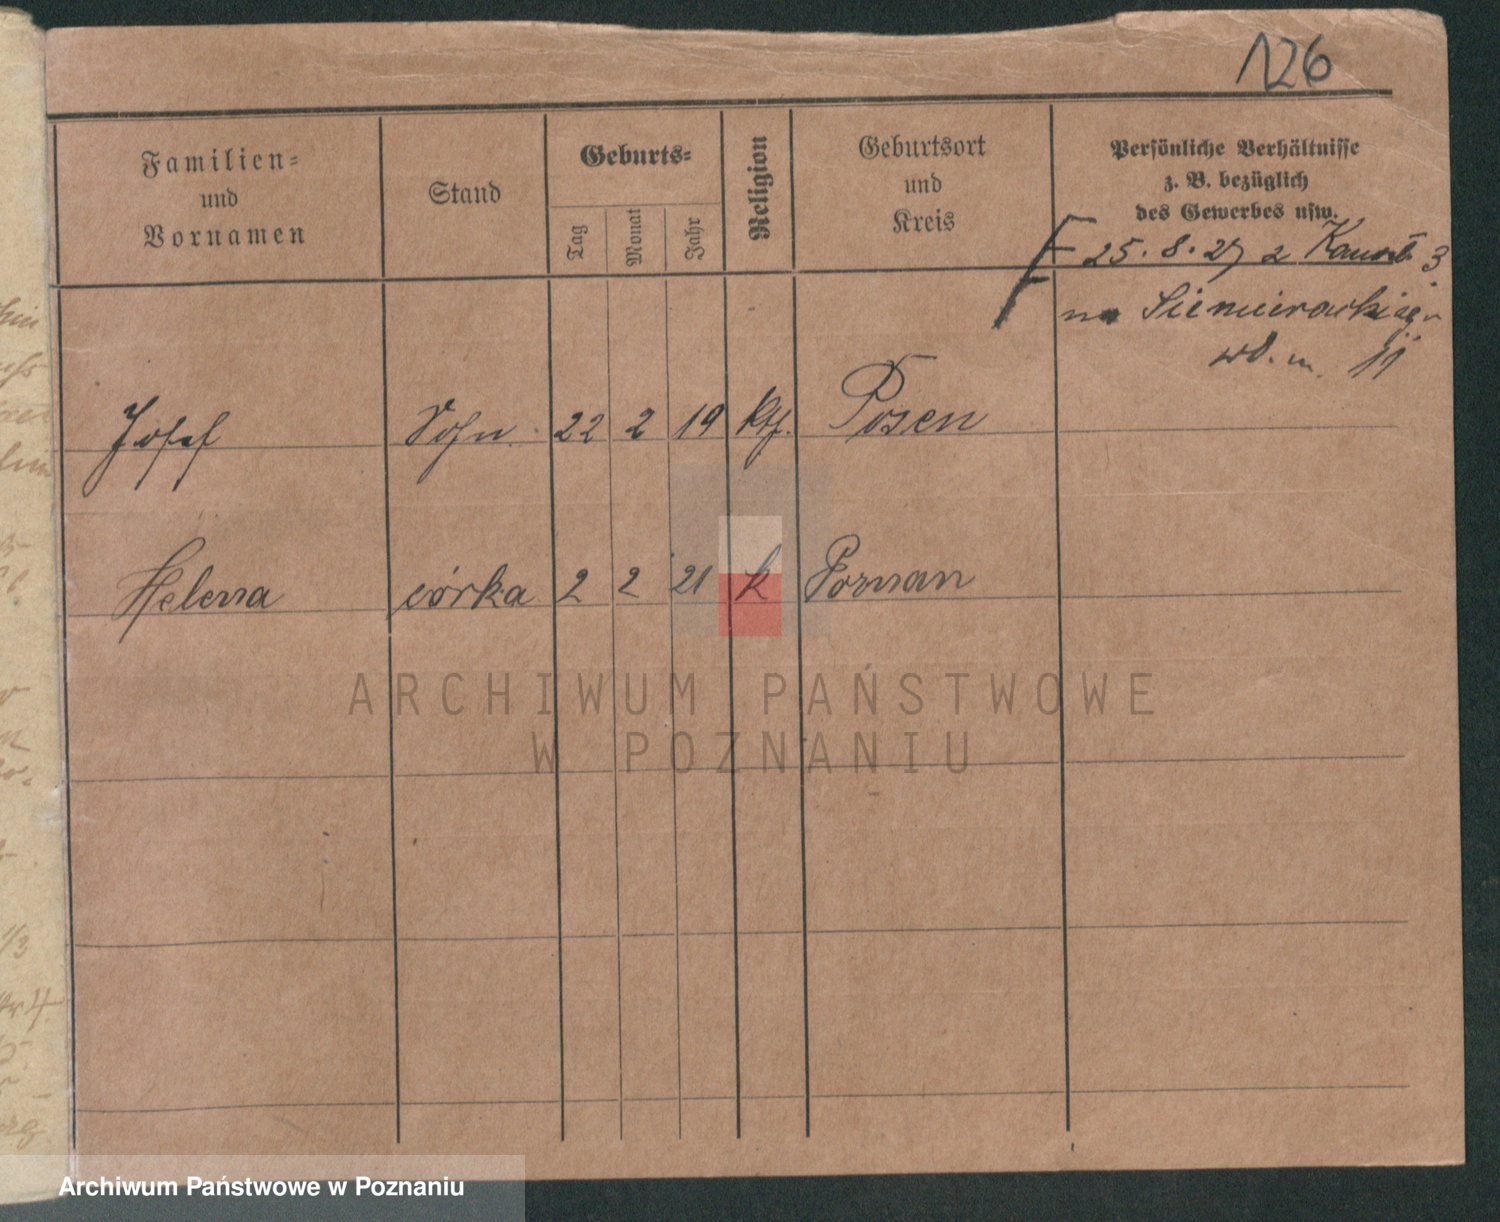 126
Familien=
und
Vornamen
Stand
Geburts=
Tag
Monat
Jahr
Religion
Geburtsort
und
Kreis
Persönliche Verhältnisse
z. B. bezüglich
des Gewerbes usw.
25. 8. 27 z 3
na
11
Josef Sohn. 22 2 19 kth. Posen
Helena córka 2 2 21 k Poznan
ARCHIWUM PAŃSTWOWE
W POZNANIU
Archiwum Państwowe w Poznaniu